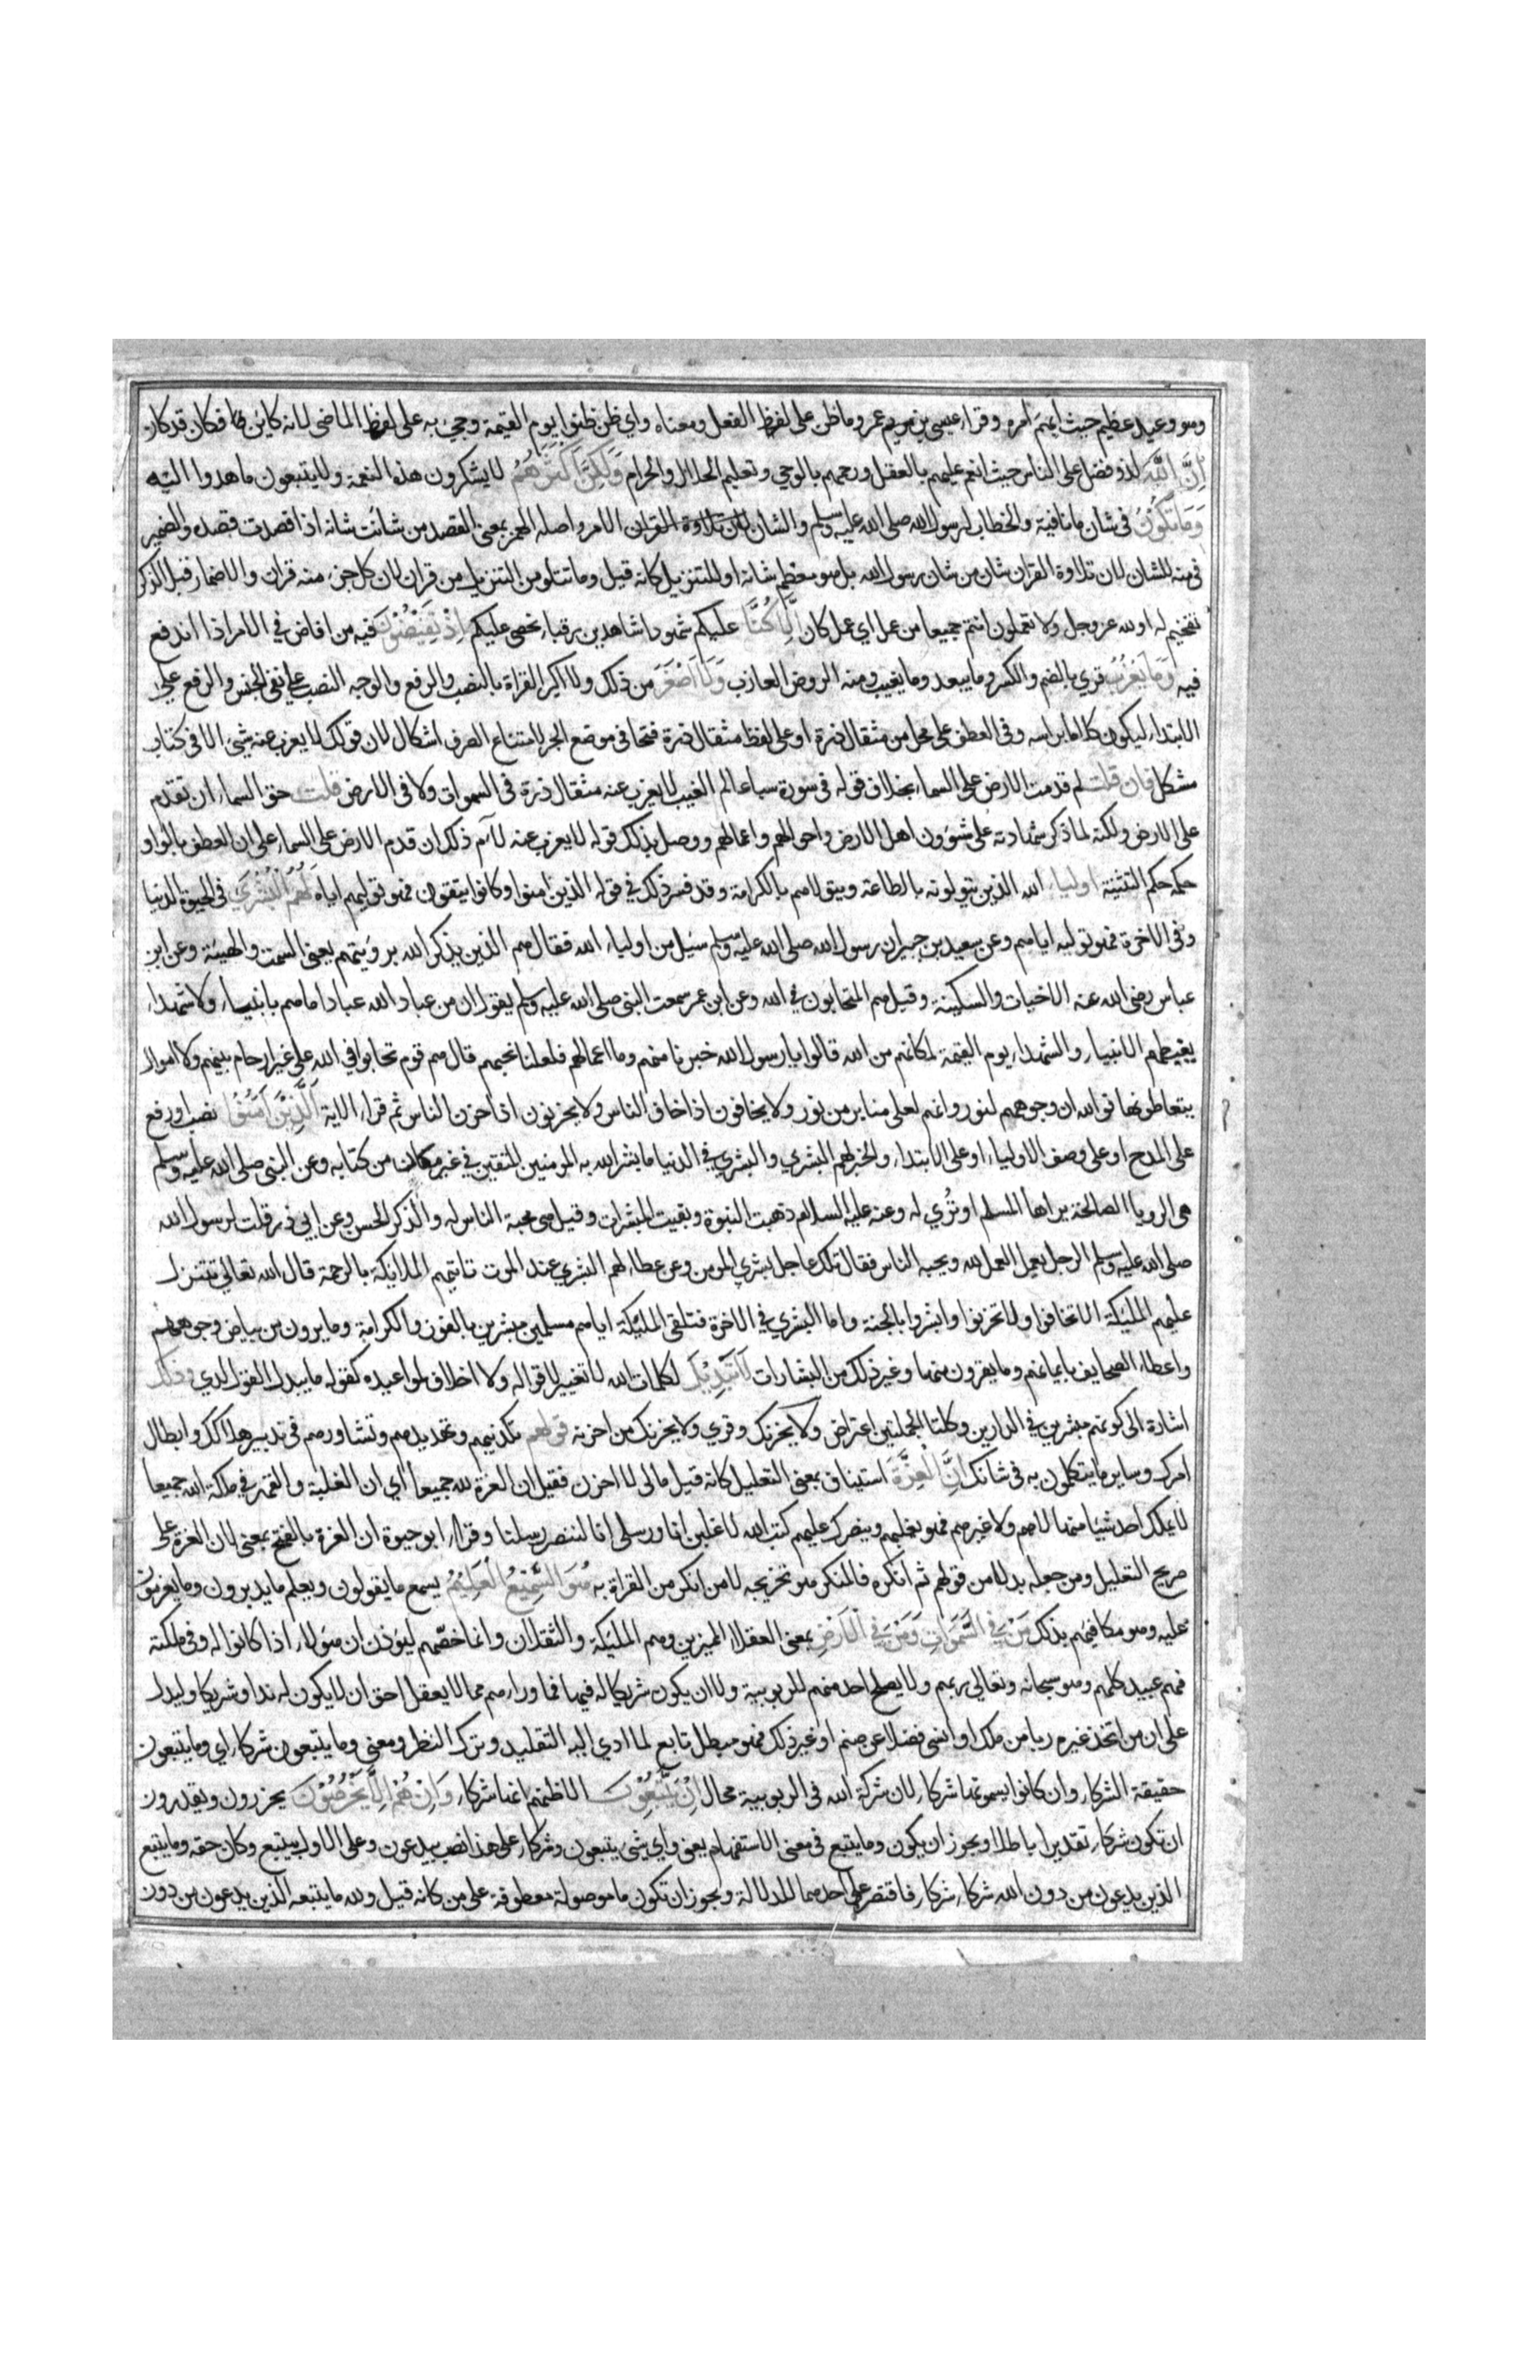 وهو وعيد عظيم حيث ابهم امره وقراء عيسى بن عمر وما ظن على لفظ الفعل ومعناه واي ظن ظنوا يوم القيمة وجيء به على لفظ الماضي لانه كاين فكان قد كان
ان الله لذو فضل على الناس حيث انعم عليهم بالعقل ورحمهم بالوحي وتعليم الحلال والحرام ولكن اكثرهم لا يشكرون هذه النعمة ولا يتبعون ما هدوا اليه
وما تكون في شان ما نافية والخطاب لرسول الله صلى الله عليه وسلم والشان الامر واصله الهمز بمعنى القصد من شانت شانه اذا قصدت قصده والضمير
في منه للشان لان تلاوة القران شان من شان رسول الله بل هو معظم شانه او للتنزيل كانه قيل وما تتلو من التنزيل من قران لان كل جزء منه قران والاضمار قبل الذكر
تفخيم له او لله عز وجل ولا تعملون انتم جميعا من عمل اي عمل كان الا كنا عليكم شهودا شاهدين رقباء نحصي عليكم اذ تفيضون فيه من افاض في الامر اذا اندفع
فيه وما يعزب قري بالضم والكسر وما يبعد وما يغيب ومنه الروض العازب ولا اصغر من ذلك ولا اكبر القراة بالنصب والرفع والوجه النصب على نفي الجنس والرفع على
الابتداء ليكون كلاما براسه وفي العطف على محل من مثقال ذرة او على لفظ مثقال ذرة فتحا في موضع الجر لامتناع الصرف اشكال لان قولك لا يعزب عنه شيء الا في كتاب
مشكل فان قلت لم قدمت الارض على السماء بخلاف قوله في سورة سبا عالم الغيب لا يعزب عنه مثقال ذرة في السموات ولا في الارض قلت حق السماء ان تقدم
على الارض ولكنه لما ذكر شهادته على شؤون اهل الارض واحوالهم واعمالهم ووصل بذلك قوله لا يعزب عنه لاءم ذلك ان قدم الارض على السماء على ان العطف بالواو
حكمه حكم التثنية اولياء الله الذين يتولونه بالطاعة ويتولاهم بالكرامة وقد فسر ذلك في قوله الذين امنوا وكانوا يتقون فهو توليهم اياه لهم البشرى في الحيوة الدنيا
وفي الاخرة فهو توليه اياهم وعن سعيد بن جبير ان رسول الله صلى الله عليه وسلم سئل من اولياء الله فقال هم الذين يذكر الله برويتهم يعني السمت والهيئة وعن ابن
عباس رضي الله عنه الاخبات والسكينة وقيل هم المتحابون في الله وعن ابن عمر سمعت النبي صلى الله عليه وسلم يقول ان من عباد الله عبادا ما هم بانبياء ولا شهداء
يغبطهم الانبياء والشهداء يوم القيمة لمكانهم من الله قالوا يا رسول الله خبرنا منهم وما اعمالهم فلعلنا نحبهم قال هم قوم تحابوا في الله على غير ارحام بينهم ولا اموال
يتعاطونها فوالله ان وجوههم لنور وانهم لعلى منابر من نور ولا يخافون اذا خاف الناس ولا يحزنون اذا حزن الناس ثم قراء الاية الذين امنوا نصب او رفع
على المدح او على وصف الاولياء او على الابتداء والخبر لهم البشري والبشري في الدنيا ما بشر الله به المومنين المتقين في غير مكان من كتابه وعن النبي صلى الله عليه وسلم
هي الرويا الصالحة يراها المسلم او تُري له وعنه عليه السلام ذهبت النبوة وبقيت المبشرات وقيل هي محبة الناس له والذكر الحسن وعن ابي ذر قلت لرسول الله
صلى الله عليه وسلم الرجل يعمل العمل لله ويحبه الناس فقال تلك عاجل بشري المومن وعن عطاء لهم البشري عند الموت تاتيهم الملايكة بالرحمة قال الله تعالي تتنزل
عليهم المليكة الا تخافوا ولا تحزنوا وابشروا بالجنة واما البشري في الاخرة فتلقي المليكة اياهم مسلمين مبشرين بالفوز والكرامة وما يرون من بياض وجوههم
واعطاء الصحايف بايمانهم وما يقرون منها وغير ذلك من البشارات لا تبديل لكلمات الله لا تغيير لاقواله ولا اخلاف لمواعيده كقوله ما يبدل القول لدي وذلك
اشارة الى كونهم مبشرين في الدارين وكلتا الجملتين اعتراض ولا يحزنك وقري ولا يحزنك من احزنه قولهم تكذيبهم وتهديدهم وتشاورهم في تدبير هلاكك وابطال
امرك وساير ما يتكلمون به في شانك ان العزة استيناف بمعنى التعليل كانه قيل مالى لا احزن فقيل ان العزة لله جميعا اي ان الغلبة والقهر في ملكة الله جميعا
لا يملك احد شيئا منها لا هم ولا غيرهم فهو يغلبهم وينصرك عليهم كتب الله لاغلبن انا ورسلي انا لننصر رسلنا وقراء ابو حيوة ان العزة بالفتح بمعنى لان العزة على
صريح التعليل ومن جعله بدلا من قولهم ثم انكره فالمنكر هو تخريجه لا من انكر من القراة به هو السميع العليم يسمع ما يقولون ويعلم ما يدبرون وما يعزمون
عليه وهو مكافيهم بذلك من في السموات ومن في الارض يعني العقلا المميزين وهم المليكة والثقلان وانما خصّهم ليوذن ان هولاء اذا كانوا له وفي ملكته
فهم عبيد كلهم وهو سبحانه وتعالي ربهم ولا يصلح احد منهم للربوبية ولا ان يكون شريكا له فيها فما وراءهم مما لا يعقل احق ان لا يكون له ندا وشريكا وليدل
على ان من اتخذ غيره ربا من ملك او انسي فضلا عن صنم او غير ذلك فهو مبطل تابع لما ادي اليه التقليد وترك النظر ومعنى وما يتبعون شركاء اي وما يتبعون
حقيقة الشركاء وان كانوا يسمونها شركاء لان شركة الله في الربوبية محال ان يتبعون الا ظنهم انها شركاء وان هم الا يخرصون يحزرون ويقدرون
ان تكون شركاء تقديرا باطلا ويجوز ان يكون وما يتبع في معنى الاستفهام يعني واي شيء يتبعون وشركاء على هذا نصب بيدعون وعلى الاول بيتبع وكان حقه وما يتبع
الذين يدعون من دون الله شركاء شركاء فاقتصر على احدهما للدلالة ويجوز ان تكون ما موصولة معطوفة على من كانه قيل ولله ما يتبعه الذين يدعون من دون